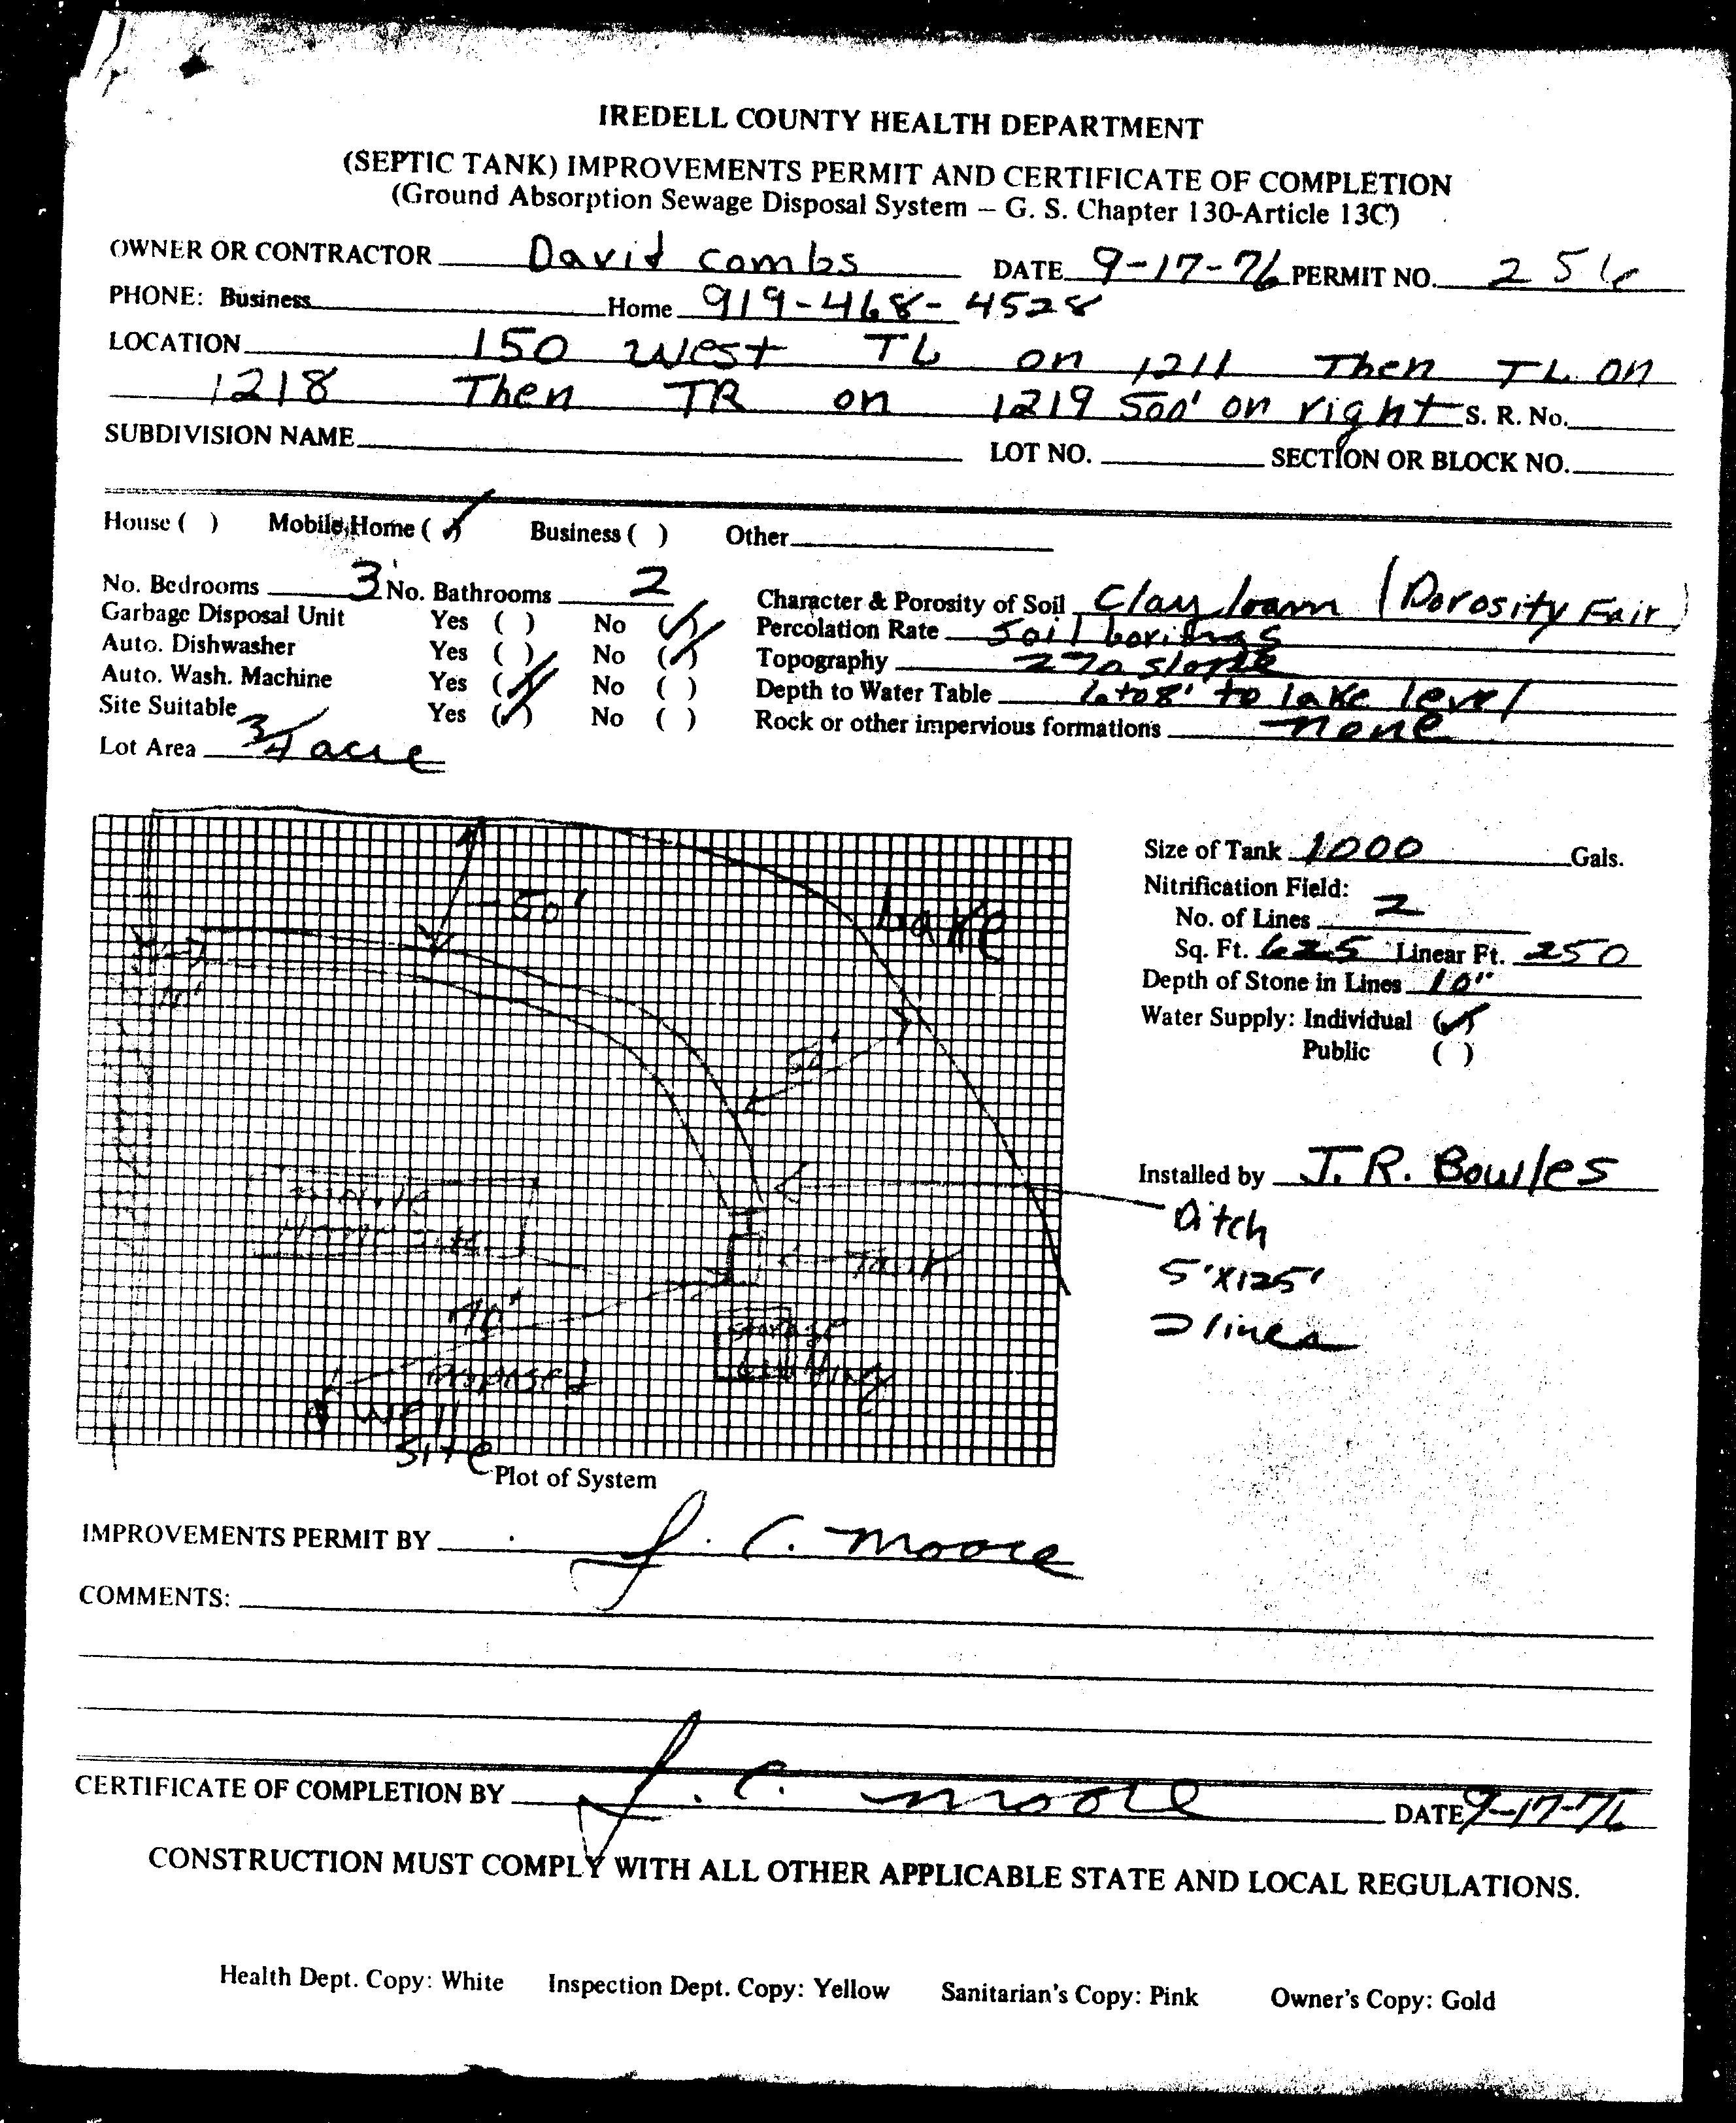 IREDELL COUNTY HEALTH DEPARTMENT
(SEPTIC TANK) IMPROVEMENTS PERMIT AND CERTIFICATE OF COMPLETION
(Ground Absorption Sewage Disposal System – G. S. Chapter 130-Article 13C)
OWNER OR CONTRACTOR David Combs DATE 9-17-76 PERMIT NO. 256
PHONE: Business Home 919-468-4528
LOCATION 150 West TL on 1211 Then TL on
1218 Then TR on 1219 500' on right S. R. No.
SUBDIVISION NAME LOT NO. SECTION OR BLOCK NO.
House ( ) Mobile Home (✓) Business ( ) Other
No. Bedrooms 3 No. Bathrooms 2 Character & Porosity of Soil Clay loam (Porosity Fair)
Garbage Disposal Unit Yes ( ) No (✓) Percolation Rate Soil borings
Auto. Dishwasher Yes ( ) No (✓) Topography 2% slope
Auto. Wash. Machine Yes (✓) No ( ) Depth to Water Table 6 to 8' to lake level
Site Suitable Yes (✓) No ( ) Rock or other impervious formations none
Lot Area 3/4 acre
Size of Tank 1000 Gals.
Nitrification Field:
No. of Lines 2
Sq. Ft. 625 Linear Ft. 250
Depth of Stone in Lines 10"
Water Supply: Individual (✓)
Public ( )
50'
Lake
10'
50'
Installed by J. R. Bowles
Ditch
5'X125'
2 lines
Mobile
Home
Tank
Storage
building
Proposed
Well
Site
Plot of System
IMPROVEMENTS PERMIT BY J. C. Moore
COMMENTS:
CERTIFICATE OF COMPLETION BY J. C. Moore DATE 9-17-76
CONSTRUCTION MUST COMPLY WITH ALL OTHER APPLICABLE STATE AND LOCAL REGULATIONS.
Health Dept. Copy: White Inspection Dept. Copy: Yellow Sanitarian's Copy: Pink Owner's Copy: Gold